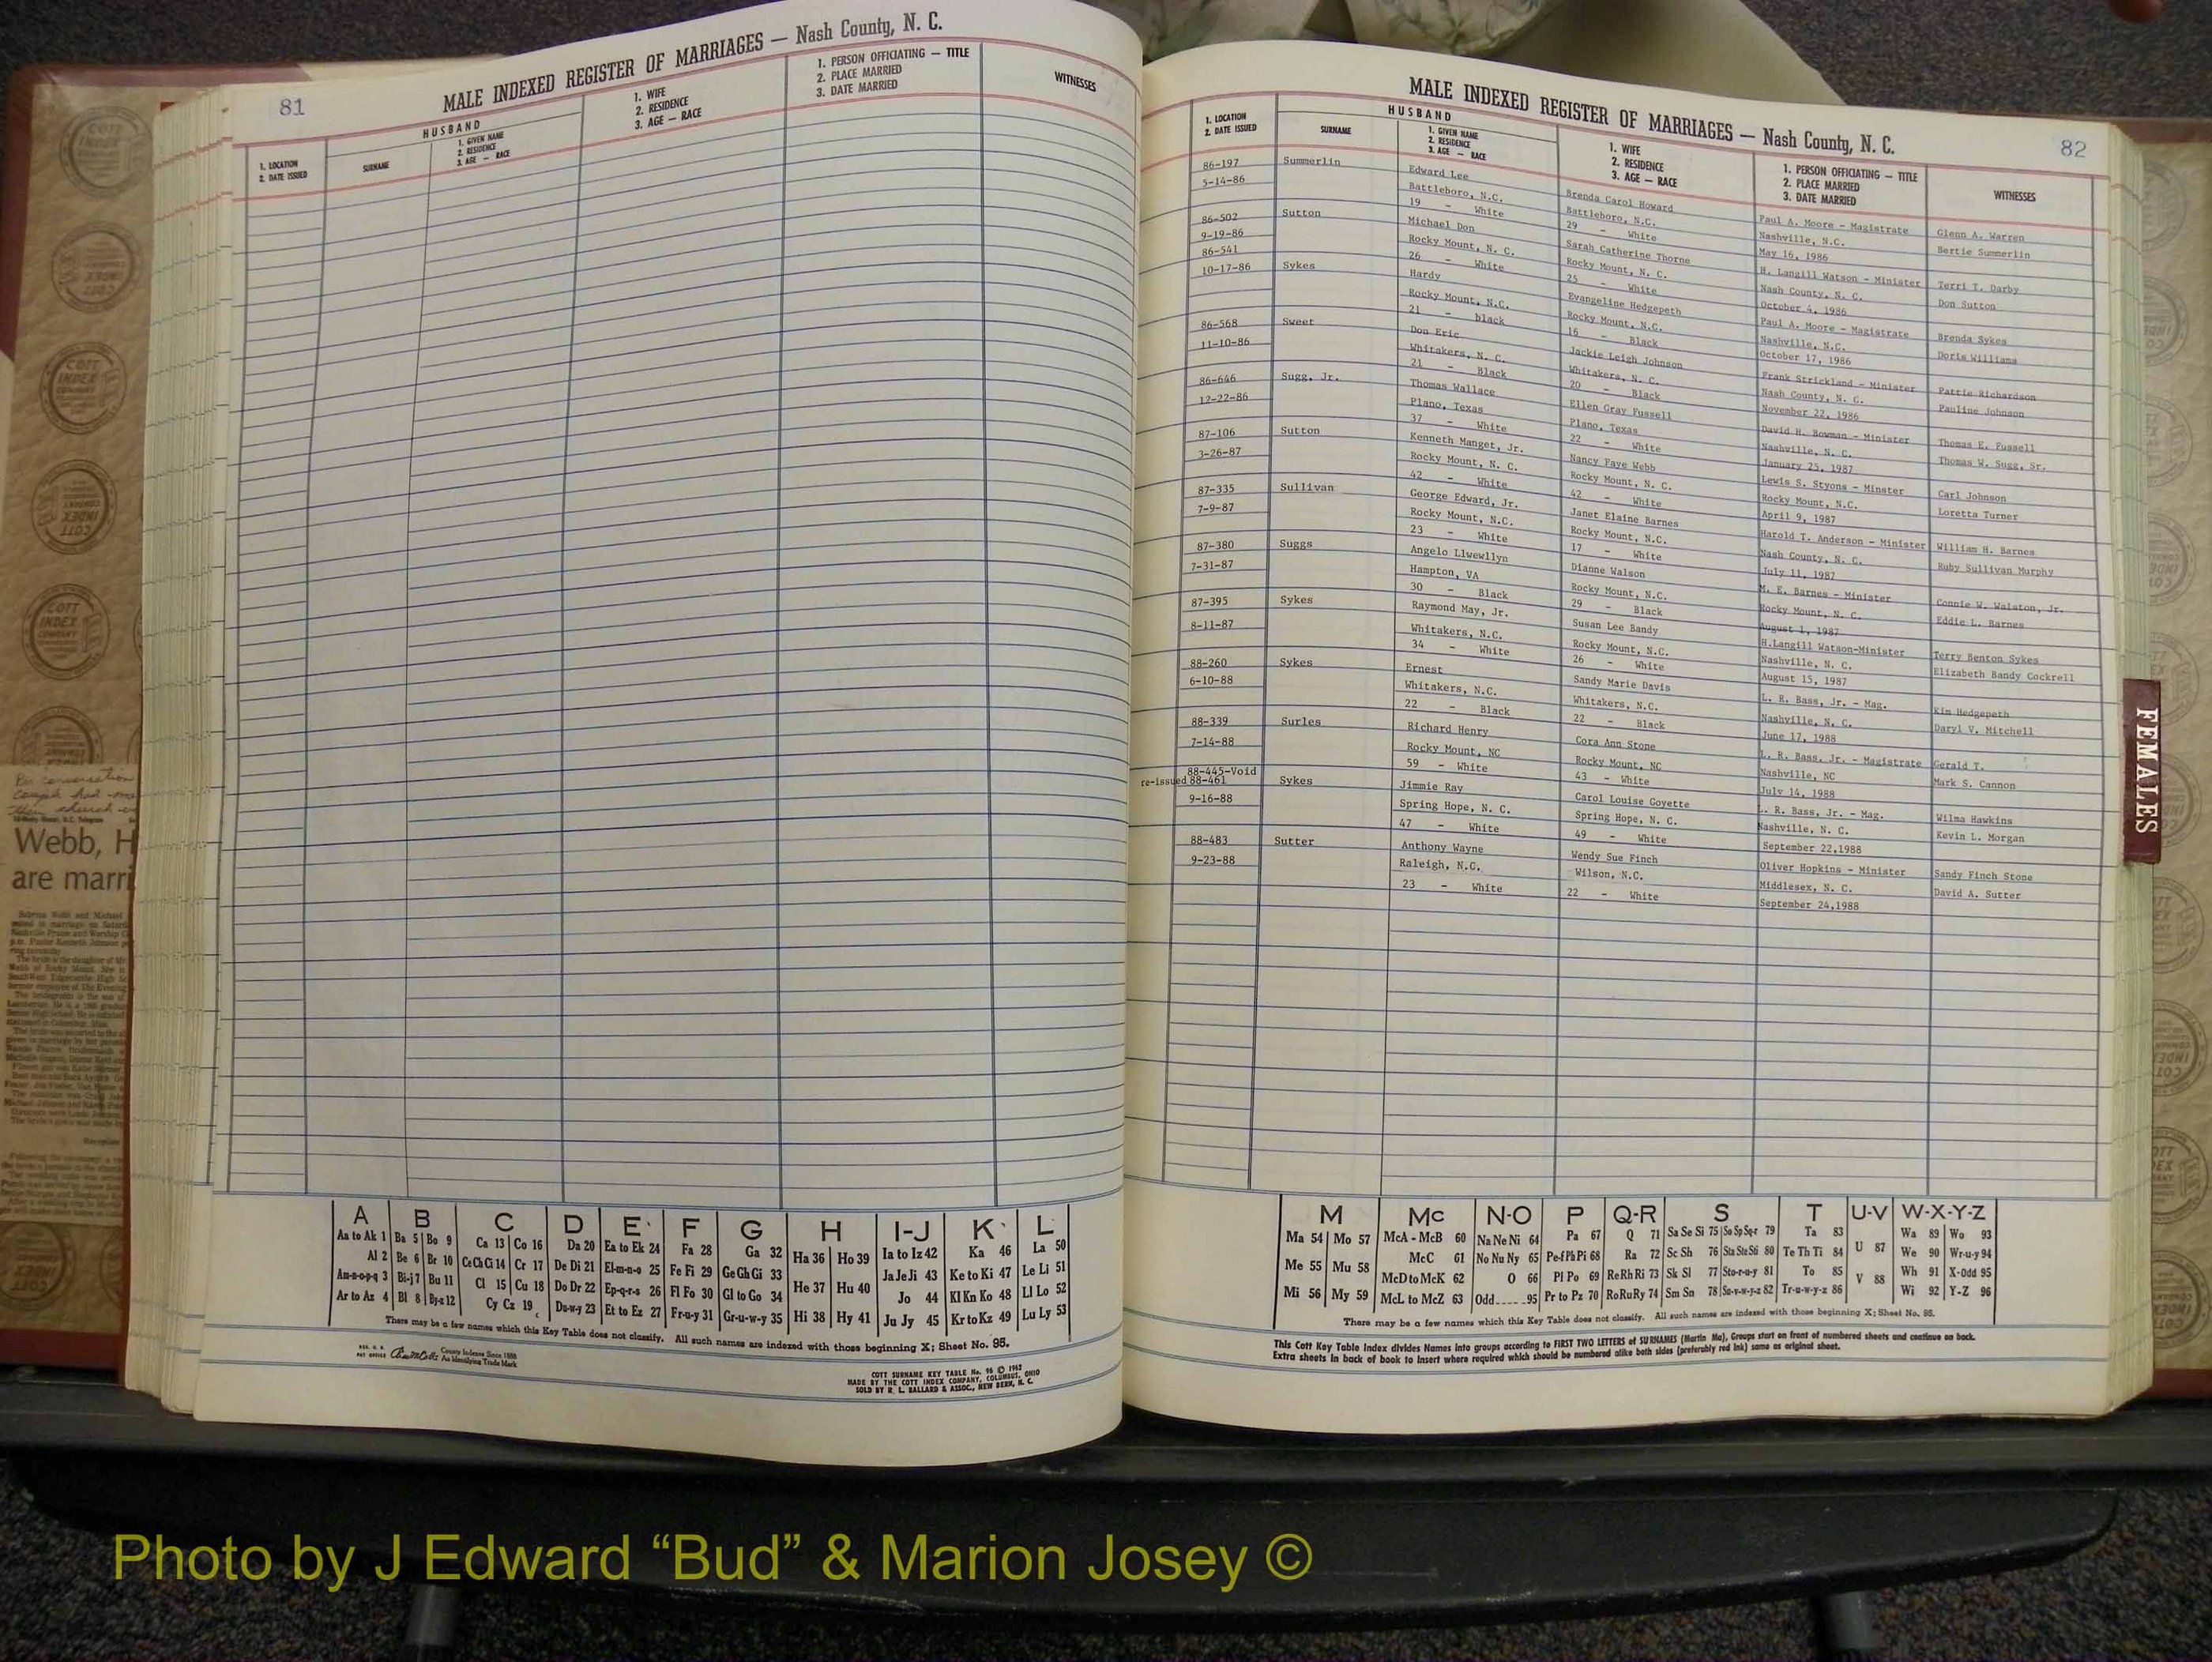 81
MALE INDEXED REGISTER OF MARRIAGES — Nash County, N. C.
1. LOCATION
2. DATE ISSUED
HUSBAND
SURNAME
1. GIVEN NAME
2. RESIDENCE
3. AGE — RACE
1. WIFE
2. RESIDENCE
3. AGE — RACE
1. PERSON OFFICIATING — TITLE
2. PLACE MARRIED
3. DATE MARRIED
WITNESSES
A B C D E F G H I-J K L
Aa to Ak 1 Ba 5 Bo 9 Ca 13 Co 16 Da 20 Ea to Ek 24 Fa 28 Ga 32 Ha 36 Ho 39 Ia to Iz 42 Ka 46 La 50
Al 2 Be 6 Br 10 Ce Ch Ci 14 Cr 17 De Di 21 El-m-n-o 25 Fe Fi 29 Ge Gh Gi 33 He 37 Hu 40 Ja Je Ji 43 Ke to Ki 47 Le Li 51
Am-n-o-p-q 3 Bi-j 7 Bu 11 Cl 15 Cu 18 Do Dr 22 Ep-q-r-s 26 Fl Fo 30 Gl to Go 34 Jo 44 Kl Kn Ko 48 Ll Lo 52
Ar to Az 4 Bl 8 By-z 12 Cy Cz 19 Du-w-y 23 Et to Ez 27 Fr-u-y 31 Gr-u-w-y 35 Hi 38 Hy 41 Ju Jy 45 Kr to Kz 49 Lu Ly 53
There may be a few names which this Key Table does not classify. All such names are indexed with those beginning X; Sheet No. 95.
County Indexes Since 1888
An Identifying Trade Mark
COTT SURNAME KEY TABLE No. 96 © 1962
MADE BY THE COTT INDEX COMPANY, COLUMBUS, OHIO
SOLD BY R. L. BALLARD & ASSOC., NEW BERN, N. C.
82
MALE INDEXED REGISTER OF MARRIAGES — Nash County, N. C.
1. LOCATION
2. DATE ISSUED
HUSBAND
SURNAME
1. GIVEN NAME
2. RESIDENCE
3. AGE — RACE
1. WIFE
2. RESIDENCE
3. AGE — RACE
1. PERSON OFFICIATING — TITLE
2. PLACE MARRIED
3. DATE MARRIED
WITNESSES
86-197 Summerlin Edward Lee Brenda Carol Howard Paul A. Moore - Magistrate Glenn A. Warren
5-14-86 Battleboro, N.C. Battleboro, N.C. Nashville, N.C. Bertie Summerlin
19 - White 29 - White May 16, 1986
86-502 Sutton Michael Don Sarah Catherine Thorne H. Langill Watson - Minister Terri T. Darby
9-19-86 Rocky Mount, N. C. Rocky Mount, N. C. Nash County, N. C. Don Sutton
26 - White 25 - White October 4, 1986
86-541
10-17-86 Sykes Hardy Evangeline Hedgepeth Paul A. Moore - Magistrate Brenda Sykes
Rocky Mount, N.C. Rocky Mount, N.C. Nashville, N.C. Doris Williams
21 - black 16 - Black October 17, 1986
86-568 Sweet Don Eric Jackie Leigh Johnson Frank Strickland - Minister Pattie Richardson
11-10-86 Whitakers, N. C. Whitakers, N. C. Nash County, N. C. Pauline Johnson
21 - Black 20 - Black November 22, 1986
86-646 Sugg, Jr. Thomas Wallace Ellen Gray Fussell David H. Bowman - Minister Thomas E. Fussell
12-22-86 Plano, Texas Plano, Texas Nashville, N. C. Thomas W. Sugg, Sr.
37 - White 22 - White January 25, 1987
87-106 Sutton Kenneth Manget, Jr. Nancy Faye Webb Lewis S. Styons - Minster Carl Johnson
3-26-87 Rocky Mount, N. C. Rocky Mount, N. C. Rocky Mount, N.C. Loretta Turner
42 - White 42 - White April 9, 1987
87-335 Sullivan George Edward, Jr. Janet Elaine Barnes Harold T. Anderson - Minister William H. Barnes
7-9-87 Rocky Mount, N.C. Rocky Mount, N.C. Nash County, N. C. Ruby Sullivan Murphy
23 - White 17 - White July 11, 1987
87-380 Suggs Angelo Llwewllyn Dianne Walson M. E. Barnes - Minister Connie W. Walston, Jr.
7-31-87 Hampton, VA Rocky Mount, N.C. Rocky Mount, N. C. Eddie L. Barnes
30 - Black 29 - Black August 1, 1987
87-395 Sykes Raymond May, Jr. Susan Lee Bandy H.Langill Watson-Minister Terry Benton Sykes
8-11-87 Whitakers, N.C. Rocky Mount, N.C. Nashville, N. C. Elizabeth Bandy Cockrell
34 - White 26 - White August 15, 1987
88-260 Sykes Ernest Sandy Marie Davis L. R. Bass, Jr. - Mag. Kim Hedgepeth
6-10-88 Whitakers, N.C. Whitakers, N.C. Nashville, N. C. Daryl V. Mitchell
22 - Black 22 - Black June 17, 1988
88-339 Surles Richard Henry Cora Ann Stone L. R. Bass, Jr. - Magistrate Gerald T.
7-14-88 Rocky Mount, NC Rocky Mount, NC Nashville, NC Mark S. Cannon
59 - White 43 - White July 14, 1988
88-445-Void
re-issued 88-461 Sykes Jimmie Ray Carol Louise Goyette L. R. Bass, Jr. - Mag. Wilma Hawkins
9-16-88 Spring Hope, N. C. Spring Hope, N. C. Nashville, N. C. Kevin L. Morgan
47 - White 49 - White September 22,1988
88-483 Sutter Anthony Wayne Wendy Sue Finch Oliver Hopkins - Minister Sandy Finch Stone
9-23-88 Raleigh, N.C. Wilson, N.C. Middlesex, N. C. David A. Sutter
23 - White 22 - White September 24,1988
M Mc N-O P Q-R S T U-V W-X-Y-Z
Ma 54 Mo 57 McA - McB 60 Na Ne Ni 64 Pa 67 Q 71 Sa Se Si 75 So Sp Sq-r 79 Ta 83 U 87 Wa 89 Wo 93
Me 55 Mu 58 McC 61 No Nu Ny 65 Pe-f Ph Pi 68 Ra 72 Sc Sh 76 Sta Ste Sti 80 Te Th Ti 84 We 90 Wr-u-y 94
McD to McK 62 O 66 Pl Po 69 Re Rh Ri 73 Sk Sl 77 Sto-r-u-y 81 To 85 V 88 Wh 91 X-Odd 95
Mi 56 My 59 McL to McZ 63 Odd------95 Pr to Pz 70 Ro Ru Ry 74 Sm Sn 78 Su-v-w-y-z 82 Tr-u-w-y-z 86 Wi 92 Y-Z 96
There may be a few names which this Key Table does not classify. All such names are indexed with those beginning X; Sheet No. 95.
This Cott Key Table Index divides Names into groups according to FIRST TWO LETTERS of SURNAMES (Martin Ma), Groups start on front of numbered sheets and continue on back.
Extra sheets in back of book to insert where required which should be numbered alike both sides (preferably red ink) same as original sheet.
FEMALES
COTT
INDEX
COMPANY
Webb, H
are marri
Photo by J Edward “Bud” & Marion Josey ©